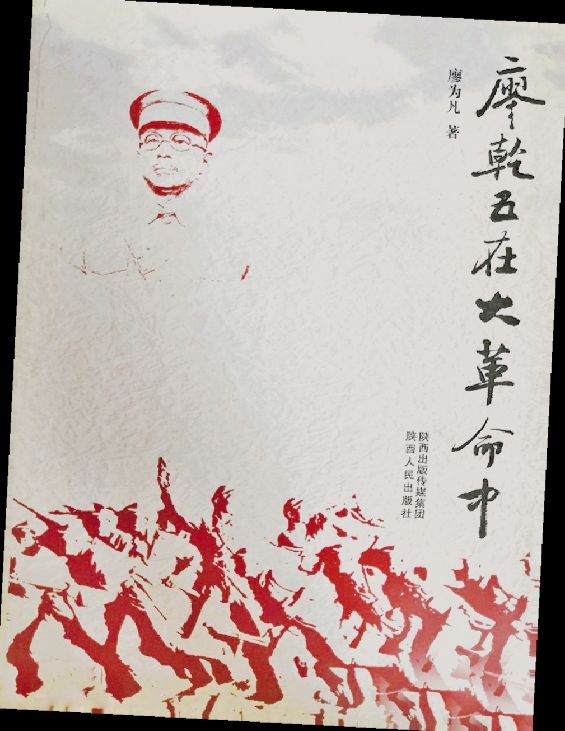 廖乾五在大革命中
廖为凡 著
陕西出版传媒集团
陕西人民出版社